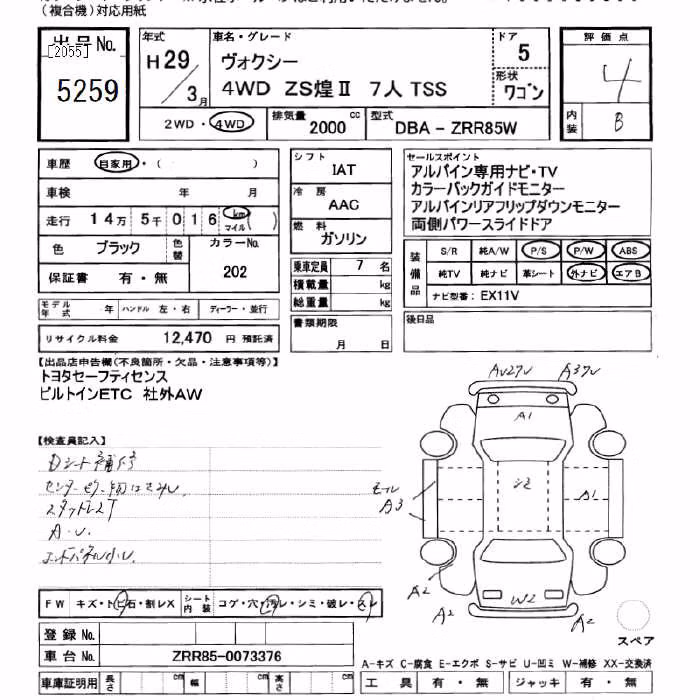 （複合機）対応用紙
出品No.
[2055]
5259
年式
H 29
3月
車名・グレード
ヴォクシー
4WD ZS煌Ⅱ 7人 TSS
ドア
5
形状
ワゴン
2WD・4WD
排気量 2000 cc
型式 DBA－ZRR85W
評価点
4
内装
B
車歴 自家用・（ ）
車検 年 月
走行 14万 5千 016 km マイル ( )
色 ブラック 色替
カラーNo.
202
保証書 有・無
モデル年式 年 ハンドル 左・右 ディーラー・並行
リサイクル料金 12,470 円 預託済
シフト
IAT
冷房
AAC
燃料
ガソリン
乗車定員 7 名
積載量 kg
総重量 kg
書類期限
月 日
セールスポイント
アルパイン専用ナビ・TV
カラーバックガイドモニター
アルパインリアフリップダウンモニター
両側パワースライドドア
装備品
S/R 純A/W P/S P/W ABS
純TV 純ナビ 革シート 外ナビ エアB
ナビ型番： EX11V
後日品
【出品店申告欄(不良箇所・欠品・注意事項等)】
トヨタセーフティセンス
ビルトインETC 社外AW
【検査員記入】
Dシート補修
スタッドレスT
A・U
エンドパネル小U
A3
A1
A1
モール
A3
W2
A2
A2
A2
スペア
FW キズ・トビ石・割レX シート内装 コゲ・穴・汚レ・シミ・破レ・スレ
登録No.
車台No. ZRR85-0073376
車庫証明用 長さ cm 幅 cm 高さ cm
A－キズ C－腐食 E－エクボ S－サビ U－凹ミ W－補修 XX－交換済
工具 有・無 ジャッキ 有・無